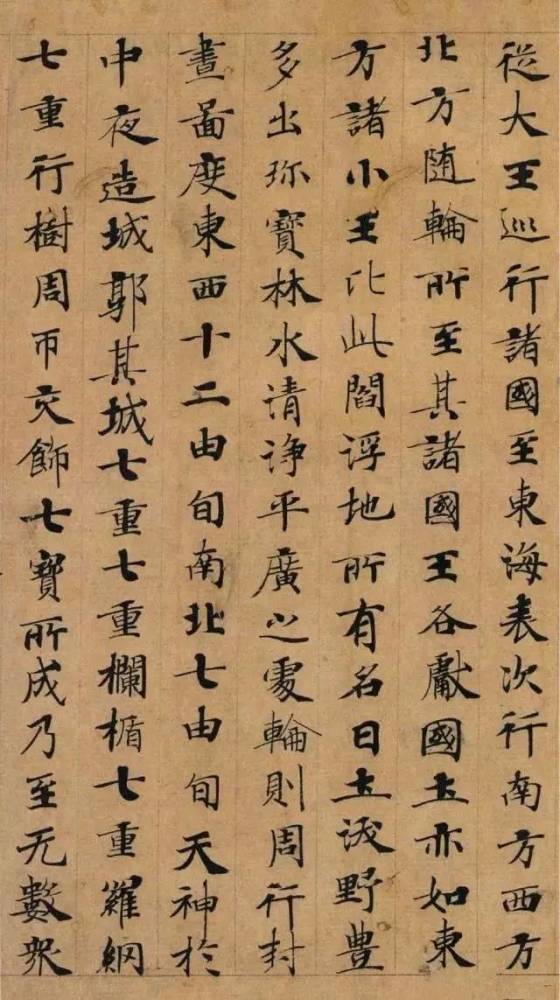 從大王巡行諸國至東海表次行南方西方
北方随輪所至其諸國王各獻國土亦如東
方諸小王比此閻浮地所有名曰土沃野豊
多出珎寶林水清淨平廣之處輪則周行封
畫啚度東西十二由旬南北七由旬天神於
中夜造城郭其城七重七重欄楯七重羅網
七重行樹周帀交飾七寶所成乃至无數衆